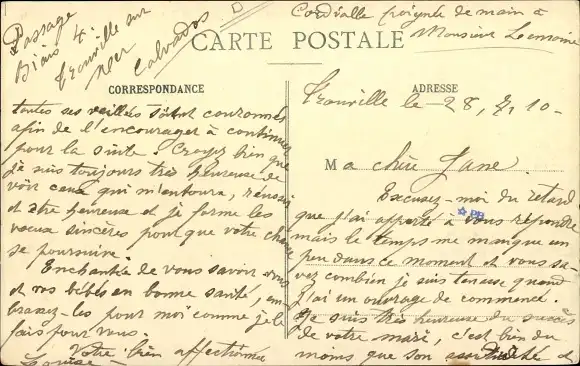 Passage
Biais 4
Trouville sur
mer
Calvados
Cordialle poignée de main à
Monsieur Lemoine
CARTE POSTALE
CORRESPONDANCE
ADRESSE
Trouville le 28, 7, 10-
Ma chère Jane.
Excusez-moi du retard
que j'ai apporté à vous répondre
mais le temps me manque un
peu dans ce moment et vous sa-
vez combien je suis tenace quand
j'ai un ouvrage de commencé.
Je suis très heureuse du succès
de votre mari, c'est bien du
moins que son assiduité et
toutes ses veillées soient couronnées
afin de l'encourager à continuer
pour la suite. Croyez bien que
je suis toujours très heureuse de
voir ceux qui m'entoura, réussir
et être heureuse et je forme les
voeux sincères pour que votre chance
se poursuive.
Enchantée de vous savoir vous
et vos bébés en bonne santé, em-
brassez-les pour moi comme je le
fais pour vous.
Votre bien affectionnée
Louise
PB